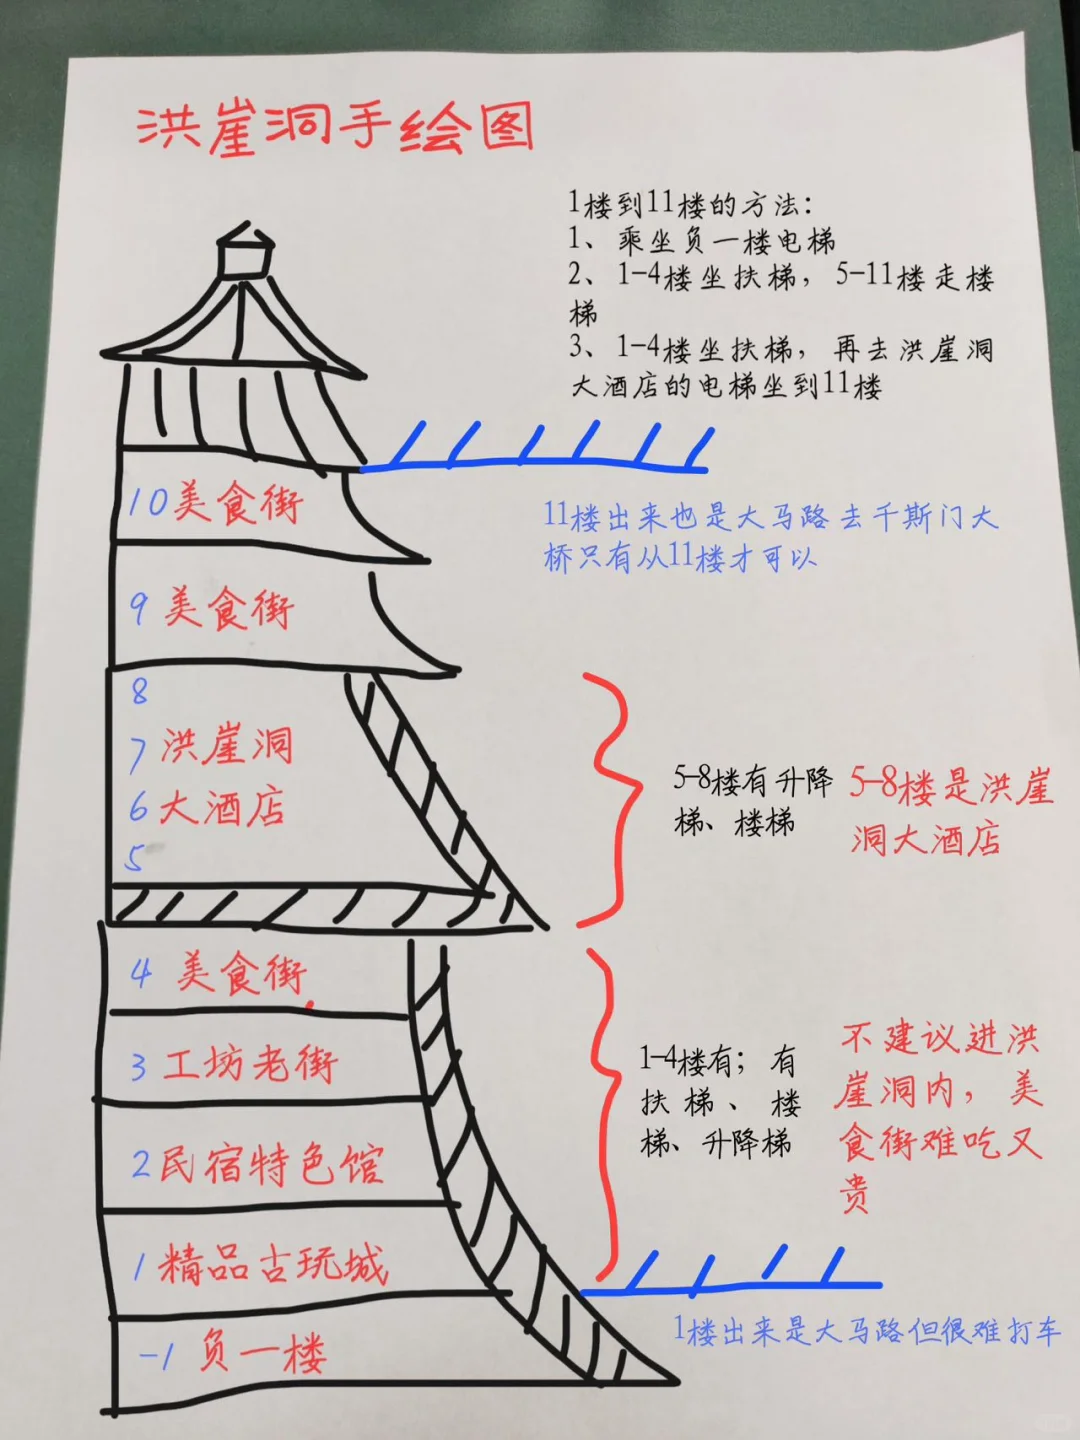 洪崖洞手绘图
1楼到11楼的方法：
1、乘坐负一楼电梯
2、1-4楼坐扶梯，5-11楼走楼
梯
3、1-4楼坐扶梯，再去洪崖洞
大酒店的电梯坐到11楼
10美食街
11楼出来也是大马路去千斯门大
桥只有从11楼才可以
9 美食街
8
7 洪崖洞
6 大酒店
5
5-8楼有升降
梯、楼梯
5-8楼是洪崖
洞大酒店
4 美食街
3 工坊老街
2民宿特色馆
1 精品古玩城
-1 负一楼
1-4楼有；有
扶梯、楼
梯、升降梯
不建议进洪
崖洞内，美
食街难吃又
贵
1楼出来是大马路但很难打车